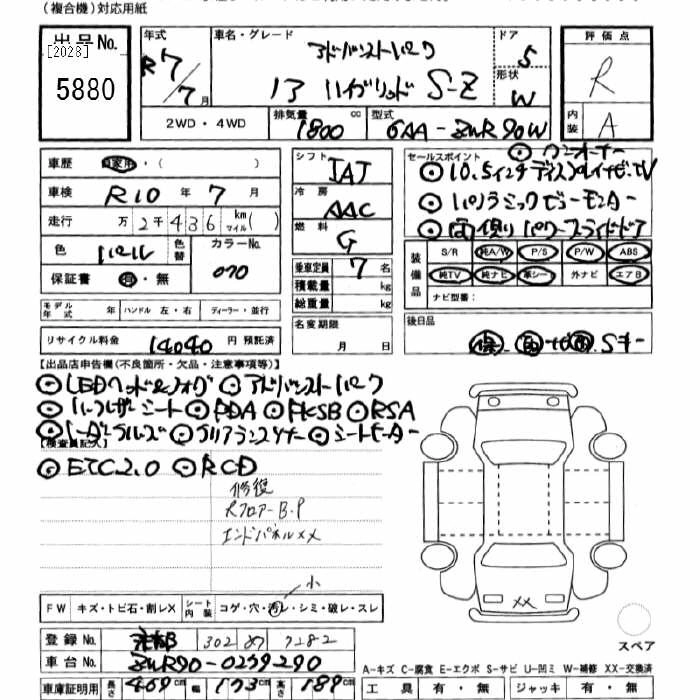 (複合機)対応用紙
出品No.
[2023]
5880
年式
R7/7月
車名・グレード
アドバンストパック
13 ハイブリッド S-Z
ドア
5
形状
W
評価点
R
内装
A
2WD・4WD
排気量
1800 cc
型式
6AA-ZWR90W
車歴 自家用・( )
車検 R10年 7月
走行 万2千436 km マイル( )
色 パール 色替 カラーNo. 070
保証書 有・無
シフト
IAT
冷房
AAC
燃料
G
乗車定員 7名
積載量 kg
総重量 kg
セールスポイント ◎ワンオーナー
◎10.5インチディスプレイナビ・TV
◎パノラミックビューモニター
◎両側パワースライドドア
装備品
S/R 純A/W P/S P/W ABS
純TV 純ナビ 革シート 外ナビ エアB
ナビ型番:
モデル年式 年 ハンドル 左・右 ディーラー・並行
リサイクル料金 14040円 預託済
名変期限
月 日
後日品
保・取・ナビ取・Sキー
【出品店申告欄(不良箇所・欠品・注意事項等)】
◎LEDヘッド&フォグ ◎アドバンストパック
◎ハーフレザーシート ◎PDA ◎PKSB ◎RSA
◎レーダークルーズ ◎クリアランスソナー ◎シートヒーター
【検査員記入】
◎ETC2.0 ◎RCD
修復
Rフロアー B.P
エンドパネルXX
小
FW キズ・トビ石・割レX シート内装 コゲ・穴・汚レ・シミ・破レ・スレ
XX
スペア
登録No. 302 7282
車台No. ZWR90-0239290
A-キズ C-腐食 E-エクボ S-サビ U-凹ミ W-補修 XX-交換済
車庫証明用 長さ 469cm 幅 173cm 高さ 189cm
工具 有・無 ジャッキ 有・無